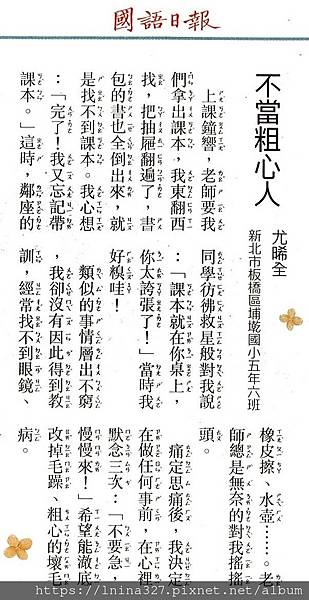 國語日報
不當粗心人
尤晞全
新北市板橋區埔墘國小五年六班
上課鐘響，老師要我
們拿出課本，我東翻西
找，把抽屜翻遍了，書
包的書也全倒出來，就
是找不到課本。我心想
：「完了！我又忘記帶
課本。」這時，鄰座的
同學彷彿救星般對我說
：「課本就在你桌上，
你太誇張了！」當時我
好糗哇！
類似的事情層出不窮
，我卻沒有因此得到教
訓，經常找不到眼鏡、
橡皮擦、水壺……。老
師總是無奈的對我搖搖
頭。
痛定思痛後，我決定
在做任何事前，在心裡
默念三次：「不要急，
慢慢來！」希望能澈底
改掉毛躁、粗心的壞毛
病。
https://lnina327.pixnet.net/album